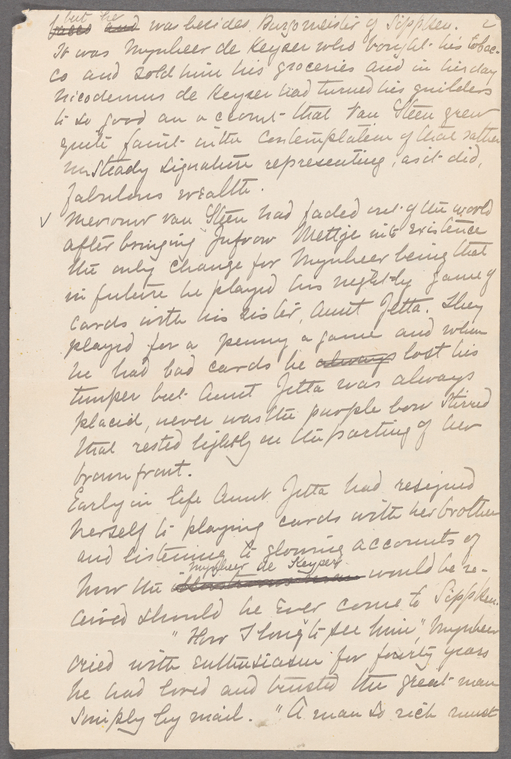 but he
and was besides Burgomeister of Sippken.
It was Mynheer de Keyser who bought his tobac-
co and sold him his groceries and in his day
Nicodemus de Keyser had turned his guilders
to so good an account that Van Steen grew
quite faint in the contemplation of that rather
unsteady signature representing, as it did,
fabulous wealth.
Mevrouw van Steen had faded out of the world
after bringing Jufvrow Mettje into existence
the only change for Mynheer being that
in future he played his nightly game of
cards with his sister, Aunt Jetta. They
played for a penny a game and when
he had bad cards he always lost his
temper but Aunt Jetta was always
placid, never was the purple bow stirred
that rested lightly on the parting of her
brown front.
Early in life Aunt Jetta had resigned
herself to playing cards with her brother
and listening to glowing accounts of
mynheer de Keyser
how the would be re-
ceived should he ever come to Sippken.
"How I long to see him", Mynheer
cried with enthusiasm for fourty years
he had loved and trusted the great man
simply by mail. "A man so rich must